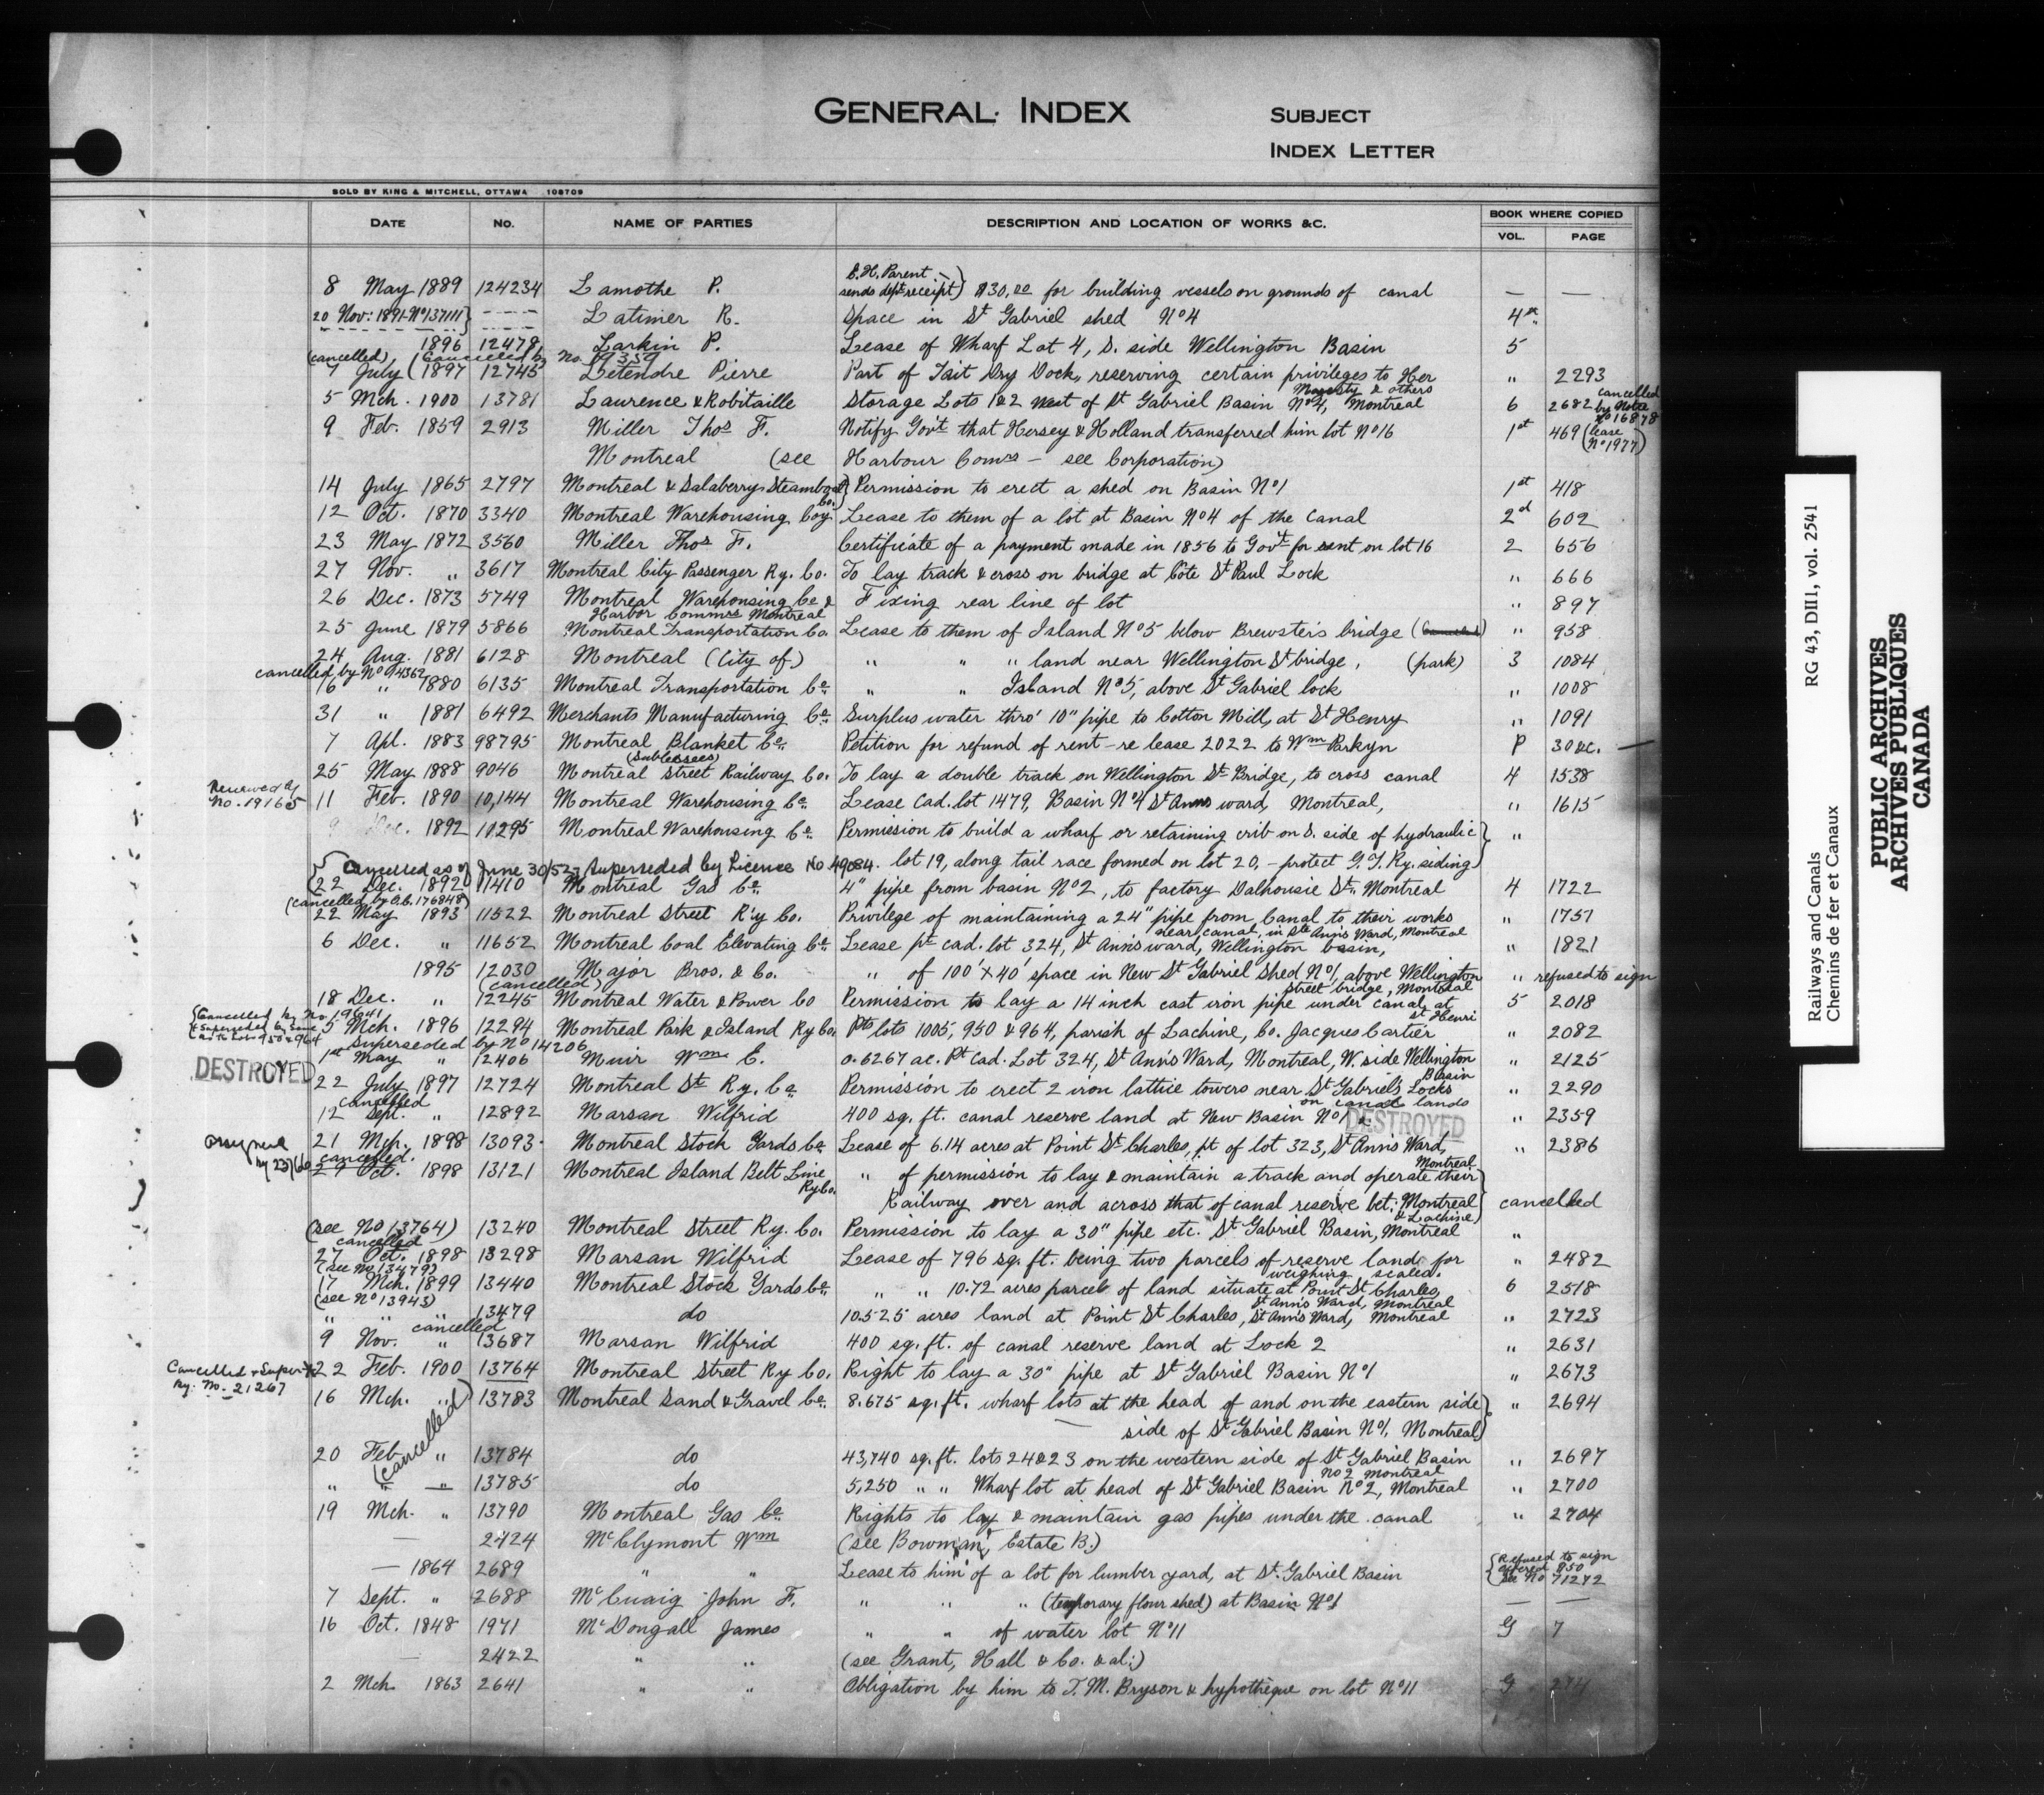 GENERAL INDEX
SUBJECT
INDEX LETTER
SOLD BY KING & MITCHELL, OTTAWA 108709
DATE No. NAME OF PARTIES DESCRIPTION AND LOCATION OF WORKS &C. BOOK WHERE COPIED
VOL. PAGE
E. H. Parent
8 May 1889 124234 Lamothe P. sends dept receipt) $30,00 for building vessels on grounds of canal — —
20 Nov: 1891-No 137111} Latimer R. Space in St Gabriel shed No 4 4th
1896 12478 Larkin P. Lease of Wharf Lot 4, S. side Wellington Basin 5
(cancelled) (Cancelled by No 19359
7 July 1897 12745 Letendre Pierre Part of Tait Dry Dock, reserving certain privileges to Her " 2293
Majesty & others
5 Mch. 1900 13781 Laurence & Robitaille Storage Lots 1&2 West of St Gabriel Basin No 4, Montreal 6 2682 cancelled by Note No 16878
9 Feb. 1859 2913 Miller Thos F. Notify Govt that Hersey & Holland transferred him lot No 16 1st 469 (lease No 1977)
Montreal (see Harbour Comrs — see Corporation)
14 July 1865 2797 Montreal & Salaberry Steamboat Co.} Permission to erect a shed on Basin No 1 1st 418
12 Oct. 1870 3340 Montreal Warehousing Coy. Lease to them of a lot at Basin No 4 of the Canal 2d 602
23 May 1872 3560 Miller Thos F. Certificate of a payment made in 1856 to Govt for rent on lot 16 2 656
27 Nov. " 3617 Montreal City Passenger Ry. Co. To lay track & cross on bridge at Côte St Paul Lock " 666
26 Dec. 1873 5749 Montreal Warehousing Co & Fixing rear line of lot " 897
Harbor Commrs Montreal
25 June 1879 5866 Montreal Transportation Co Lease to them of Island No 5 below Brewster's bridge " 958
24 Aug. 1881 6128 Montreal (City of) " " " land near Wellington St bridge, (park) 3 1084
cancelled by No 94362
16 " 1880 6135 Montreal Transportation Co. " " Island No 5, above St Gabriel lock " 1008
31 " 1881 6492 Merchants Manufacturing Co. Surplus water thro' 10" pipe to Cotton Mill, at St Henry " 1091
7 Apl. 1883 98795 Montreal Blanket Co. Petition for refund of rent - re lease 2022 to Wm Parkyn P 30 &c. —
(Sublessees)
25 May 1888 9046 Montreal Street Railway Co. To lay a double track on Wellington St Bridge, to cross canal 4 1538
Renewed by
No. 19165 11 Feb. 1890 10,144 Montreal Warehousing Co. Lease Cad. lot 1479, Basin No 4 St Anns ward, Montreal, " 1615
9 Dec. 1892 11295 Montreal Warehousing Co. Permission to build a wharf or retaining crib on S. side of hydraulic} "
Cancelled as of June 30/52, Superseded by Licence No 49084. lot 19, along tail race formed on lot 20, - protect G. T. Ry. siding)
22 Dec. 1892 11410 Montreal Gas Co. 4" pipe from basin No 2, to factory Dalhousie St. Montreal 4 1722
(cancelled by O.C. 176848)
22 May 1893 11522 Montreal Street R'y Co. Privilege of maintaining a 24" pipe from Canal to their works " 1751
near canal, in Ste Ann's Ward, Montreal
6 Dec. " 11652 Montreal Coal Elevating Co Lease pt cad. lot 324, St Ann's ward, Wellington basin, " 1821
1895 12030 Major Bros. & Co. " of 100' x 40' space in New St Gabriel Shed No 1, above Wellington " refused to sign
(cancelled) Street bridge, Montreal
18 Dec. " 12245 Montreal Water & Power Co Permission to lay a 14 inch cast iron pipe under canal at 5 2018
St Henri
{Cancelled by No. 19641
5 Mch. 1896 12294 Montreal Park & Island Ry Co. Pts lots 1005, 950 & 964, parish of Lachine, Co. Jacques Cartier " 2082
Superseded by No 14206
1st May " 12406 Muir Wm E. 0.6267 ac. Pt Cad. Lot 324, St Ann's Ward, Montreal, W. side Wellington " 2125
Basin
DESTROYED
22 July 1897 12724 Montreal St Ry. Co. Permission to erect 2 iron lattice towers near St Gabriel's Locks " 2290
on canal lands
cancelled
12 Sept. " 12892 Marsan Wilfrid 400 sq. ft. canal reserve land at New Basin No 1 " 2359
DESTROYED
21 Mch. 1898 13093 Montreal Stock Yards Co Lease of 6.14 acres at Point St Charles, pt of lot 323, St Ann's Ward, " 2386
Montreal
cancelled.
29 Oct. 1898 13121 Montreal Island Belt Line Ry Co. " of permission to lay & maintain a track and operate their
Railway over and across that of canal reserve bet: Montreal & Lachine) cancelled
(see No 13764) 13240 Montreal Street Ry. Co. Permission to lay a 30" pipe etc. St Gabriel Basin, Montreal "
cancelled
27 Oct. 1898 13298 Marsan Wilfrid Lease of 796 sq. ft. being two parcels of reserve land for " 2482
weighing scales.
(see No 13479)
17 Mch. 1899 13440 Montreal Stock Yards Co " " 10.72 acres parcel of land situate at Point St Charles, 6 2518
St Ann's Ward, Montreal
(see No 13943)
" " " 13479 do 10.525 acres land at Point St Charles, St Ann's Ward, Montreal " 2723
cancelled
9 Nov. " 13687 Marsan Wilfrid 400 sq. ft. of canal reserve land at Lock 2 " 2631
Cancelled & Super.
by: No. 21267
22 Feb. 1900 13764 Montreal Street Ry Co. Right to lay a 30" pipe at St Gabriel Basin No 1 " 2673
16 Mch. " 13783 Montreal Sand & Gravel Co. 8.675 sq. ft. wharf lots at the head of and on the eastern side} " 2694
side of St Gabriel Basin No 1, Montreal)
(cancelled)
20 Feb " 13784 do 43,740 sq. ft. lots 24&23 on the western side of St Gabriel Basin " 2697
No 2 Montreal
" " " 13785 do 5,250 " " Wharf lot at head of St Gabriel Basin No 2, Montreal " 2700
19 Mch. " 13790 Montreal Gas Co. Rights to lay & maintain gas pipes under the canal " 2704
— 2424 McClymont Wm (see Bowman, Estate B.)
— 1864 2689 " " Lease to him of a lot for lumber yard, at St. Gabriel Basin {Refused to sign
see No 71272
7 Sept. " 2688 McCuaig John F. " " " (temporary flour shed) at Basin No 1 — —
16 Oct. 1848 1971 McDougall James " " of water lot No 11 G 7
— 2422 " " (see Grant, Hall & Co. & al:)
2 Mch 1863 2641 " " Obligation by him to T. M. Bryson & hypothèque on lot No 11 G 274
Railways and Canals RG 43, DII1, vol. 2541
Chemins de fer et Canaux
PUBLIC ARCHIVES
ARCHIVES PUBLIQUES
CANADA